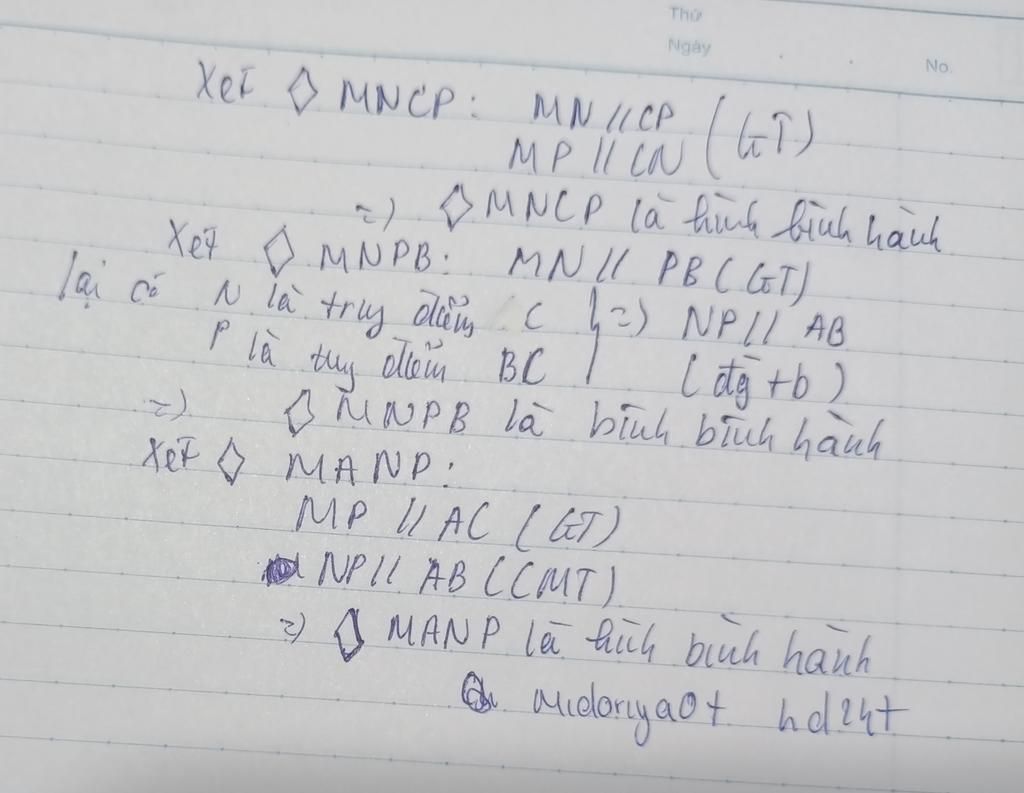 Thứ
Ngày . .
No.
Xét ◊ MNCP: MN // CP (GT)
MP // CN
=) ◊ MNCP là hình bình hành
Xét ◊ MNPB: MN // PB (GT)
lại có N là truy điểm C } =) NP // AB
P là tuy điểm BC (đg + b)
=) ◊ MNPB là bình bình hành
Xét ◊ MANP:
MP // AC (GT)
NP // AB (CMT)
=) ◊ MANP là hình bình hành
midoriya0t hd24t